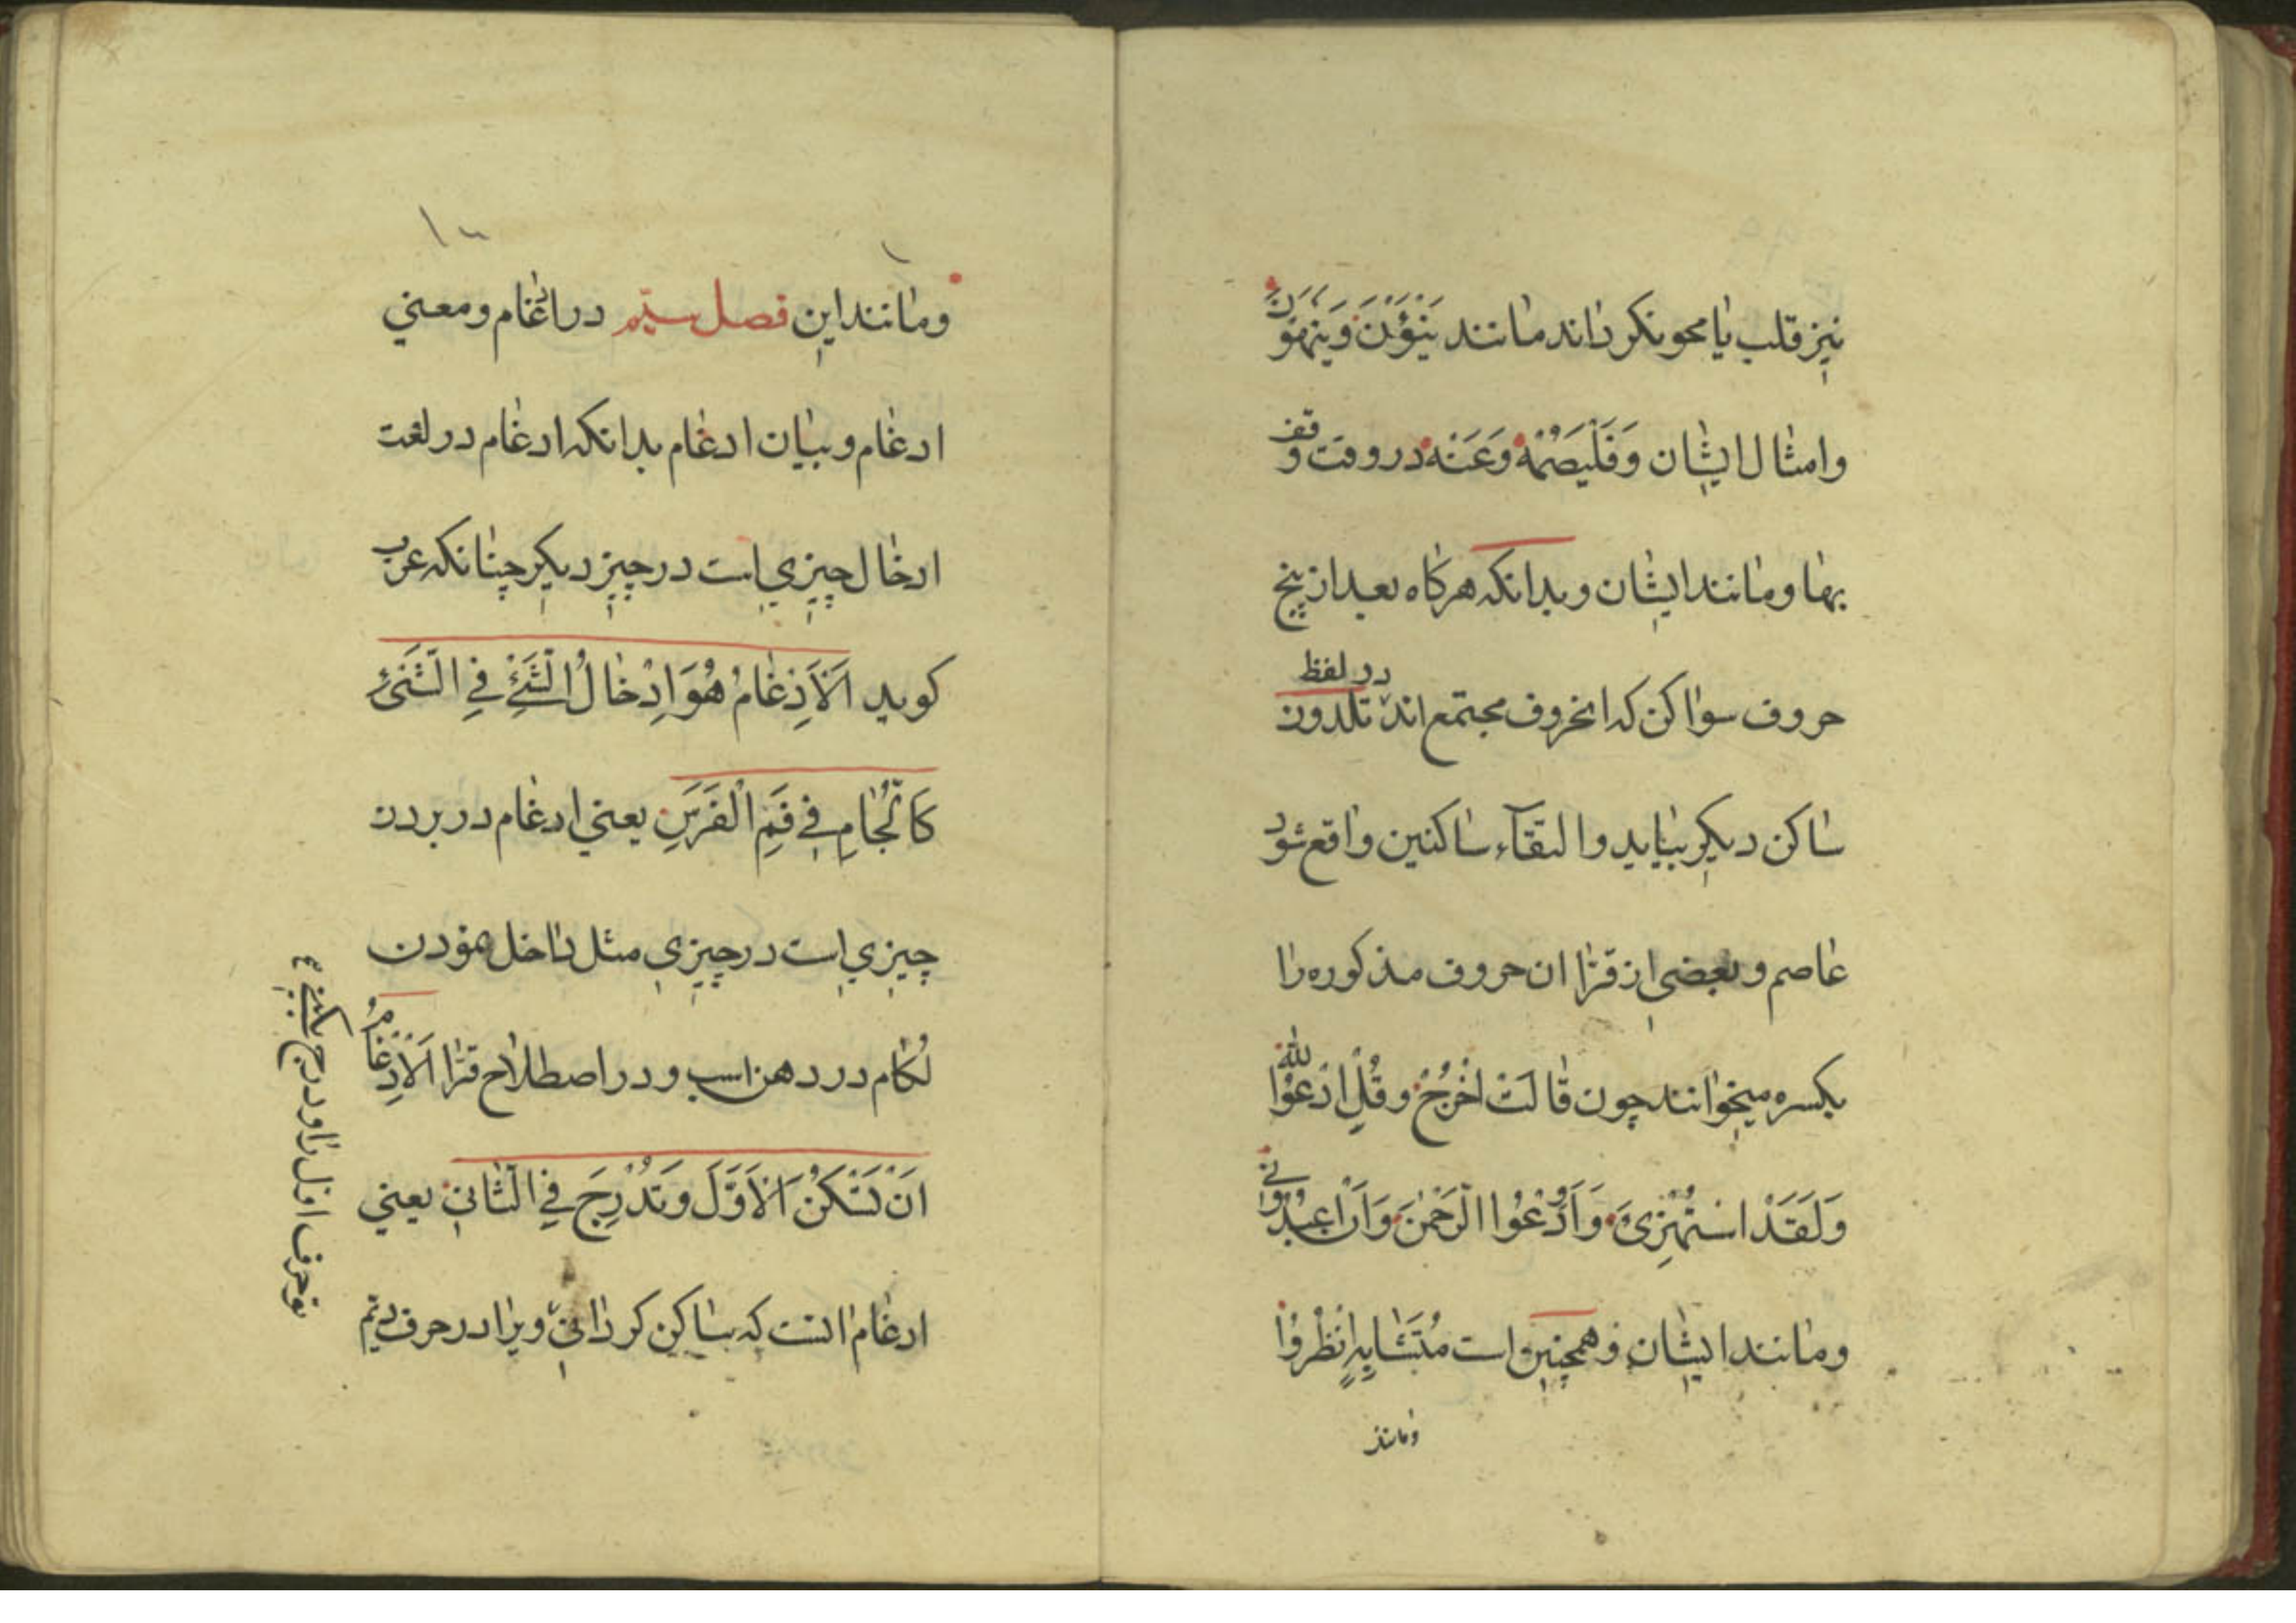 نیز قلب یا محو نکرداند مانند یَنْؤَنَ وَیَنْهَوْنَ
وامثال ایشان وَفَلْیَصُمْهُ وَعَنْهُ در وقت وقف
بها ومانند ایشان وبدانکه هرکاه بعد از پنج
حروف سواکن که انحروف مجتمع اند در لفظ تلدون
ساکن دیکر بیاید والتقآء ساکنین واقع شود
عاصم وبعضی از قرّا ان حروف مذکوره را
بکسره میخوانند چون قالَتْ اخْرُجْ وقُلِ ادْعُوا اللّٰه
وَلَقَدْ اسْتُهْزِیَٔ وَاَوِدْعُوا الرَّحْمٰنَ وَاَنْ اعْبُدُونی
ومانند ایشان وهمچنین است مُتَشَابِهٍ انْظُرُوا
ومانند
١٠
ومانند این فصل سیّم در ادغام ومعنی
ادغام وبیان ادغام بدانکه ادغام در لغت
ادخال چیزی است در چیز دیکر چنانکه عرب
کوید اَلْاَدِغامُ هُوَ اِدْخالُ الشَّیْءِ فِی الشَّیْءِ
کَالِّجامِ فی فَمِ الْفَرَسِ یعنی ادغام در بردن
چیزی است در چیزی مثل داخل نمودن
لکام در دهن اسب ودر اصطلاح قرّا اَلْاَدِغامُ
اَنْ تَسْکُنَ الْاَوَّلَ وتَدْرِجَ فِی الثَّانی یعنی
ادغام انست که ساکن کردانی ویرا در حرف دیّم
حرف اول را ودرج بکنی